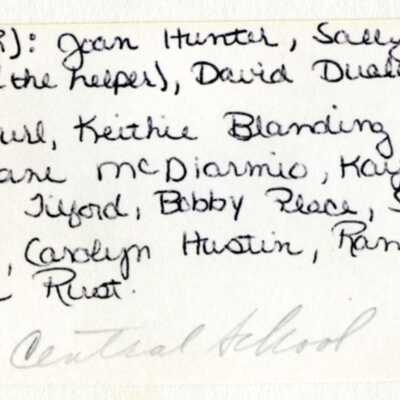 ): Joan Hunter, Sally
the helper), David
Keithie Blanding
McDiarmid, Kay
Tilford, Bobby Peace, S
, Carolyn Hustin, Ran
Rust.
Central School